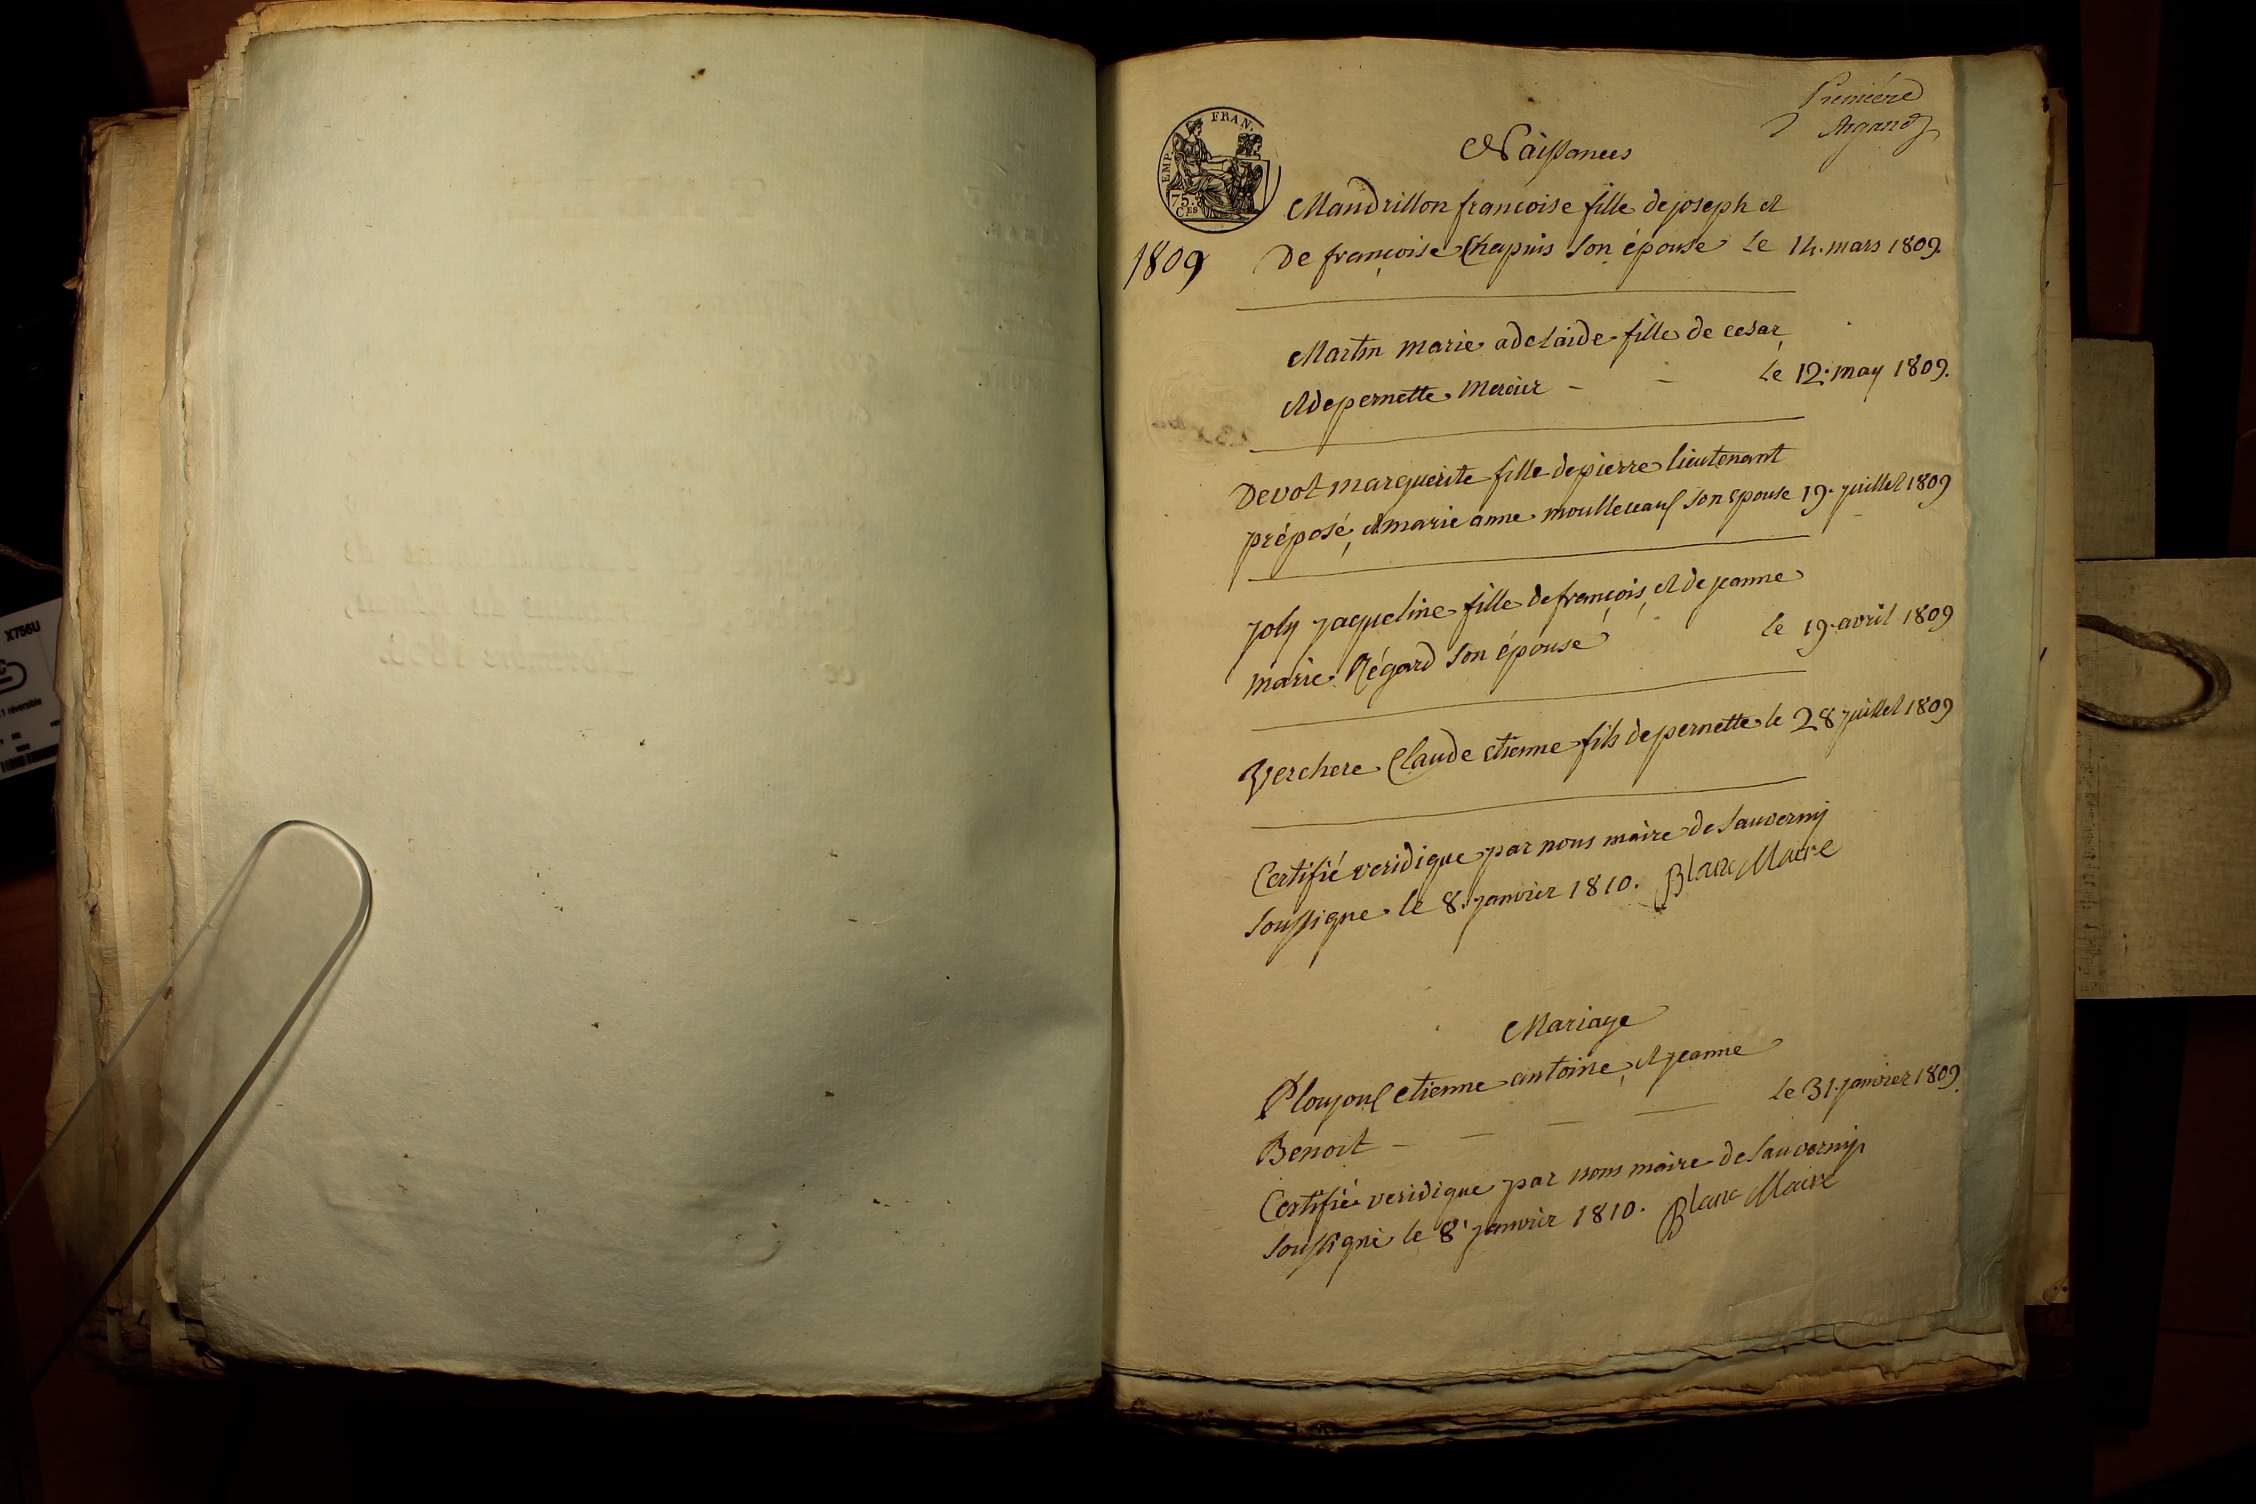 Premiére
Argand
EMP. FRAN.
75.
CES
Naissances
1809
Mandrillon francoise fille de joseph et
De françoise Chapuis son épouse le 14. mars 1809.
Martin marie adelaide fille de cesar
et de pernette Mercier - - le 12. may 1809.
Devot marguerite fille de pierre lieutenant
préposé, et marie anne son epouse 19. juillet 1809
joly jaqueline fille de françois, et de jeanne
marie Régard son épouse le 19. avril 1809
Verchere Claude etienne fils de pernette le 28 juillet 1809
Certifié veridique par nous maire de Sauverny
soussigne le 8. janvier 1810. Blanc Maire
Mariage
etienne antoine, et jeanne
Benoit - - - — le 31. janvier 1809.
Certifié veridique par nous maire de Sauverny
soussigné le 8 janvier 1810. Blanc Maire
X756U